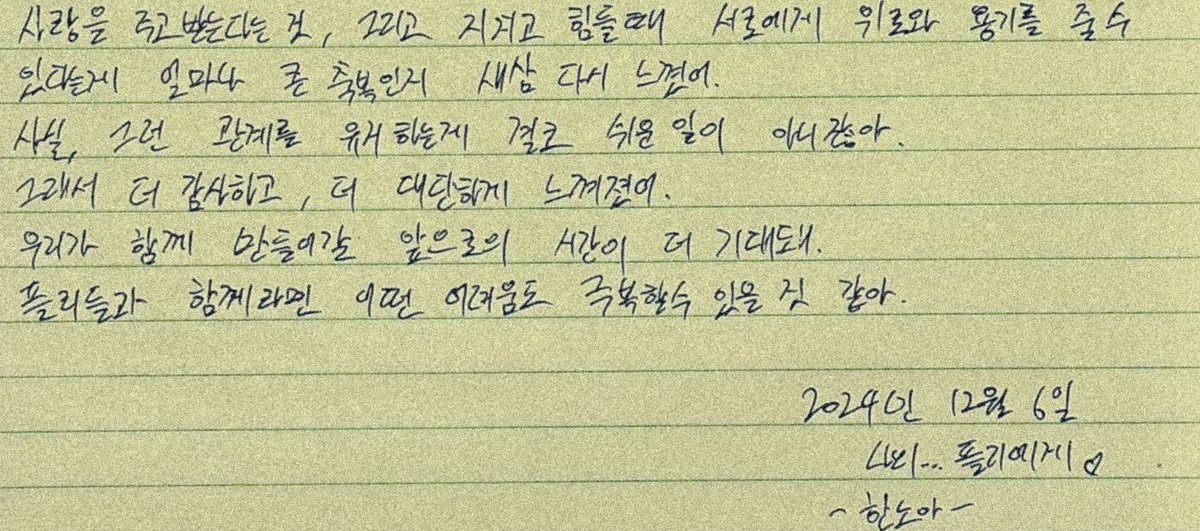 사랑을 주고 받는다는 것, 그리고 지치고 힘들때 서로에게 위로와 용기를 줄 수
있다는게 얼마나 큰 축복인지 새삼 다시 느꼈어.
사실, 그런 관계를 유지하는게 결코 쉬운 일이 아니잖아.
그래서 더 감사하고, 더 대단하게 느껴졌어.
우리가 함께 만들어갈 앞으로의 시간이 더 기대돼.
플리들과 함께라면 어떤 어려움도 극복할수 있을 것 같아.
2024년 12월 6일
나의... 플리에게♡
- 한노아 -